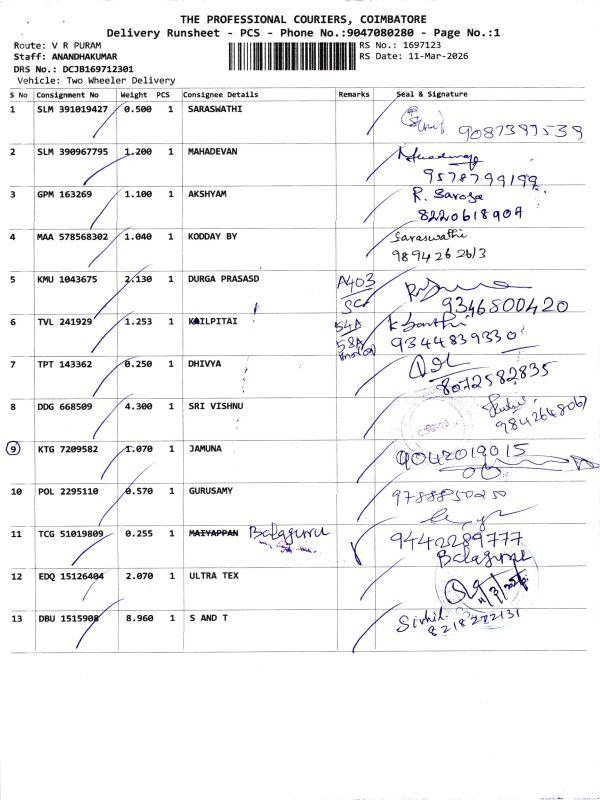 THE PROFESSIONAL COURIERS, COIMBATORE
Delivery Runsheet - PCS - Phone No.:9047080280 - Page No.:1
Route: V R PURAM
RS No.: 1697123
Staff: ANANDHAKUMAR
RS Date: 11-Mar-2026
DRS No.: DCJB169712301
Vehicle: Two Wheeler Delivery
S No Consignment No Weight PCS Consignee Details Remarks Seal & Signature
1 SLM 391019427 0.500 1 SARASWATHI
9087397539
2 SLM 390967795 1.200 1 MAHADEVAN
9578799199
3 GPM 163269 1.100 1 AKSHYAM R. Saroja
8220618909
4 MAA 578568302 1.040 1 KODDAY BY Saraswathi
9894262613
5 KMU 1043675 2.130 1 DURGA PRASASD A403
9346800420
6 TVL 241929 1.253 1 KAILPITAI 54A K Santhi
58A 9344839330
7 TPT 143362 0.250 1 DHIVYA
8072582835
8 DDG 668509 4.300 1 SRI VISHNU
9842648067
9 KTG 7209582 1.070 1 JAMUNA 9042019015
10 POL 2295110 0.570 1 GURUSAMY 9788850250
11 TCG 51019809 0.255 1 MAIYAPPAN Balaguru 9442289777
Balaguru
12 EDQ 15126404 2.070 1 ULTRA TEX
13 DBU 1515908 8.960 1 S AND T
8218272131